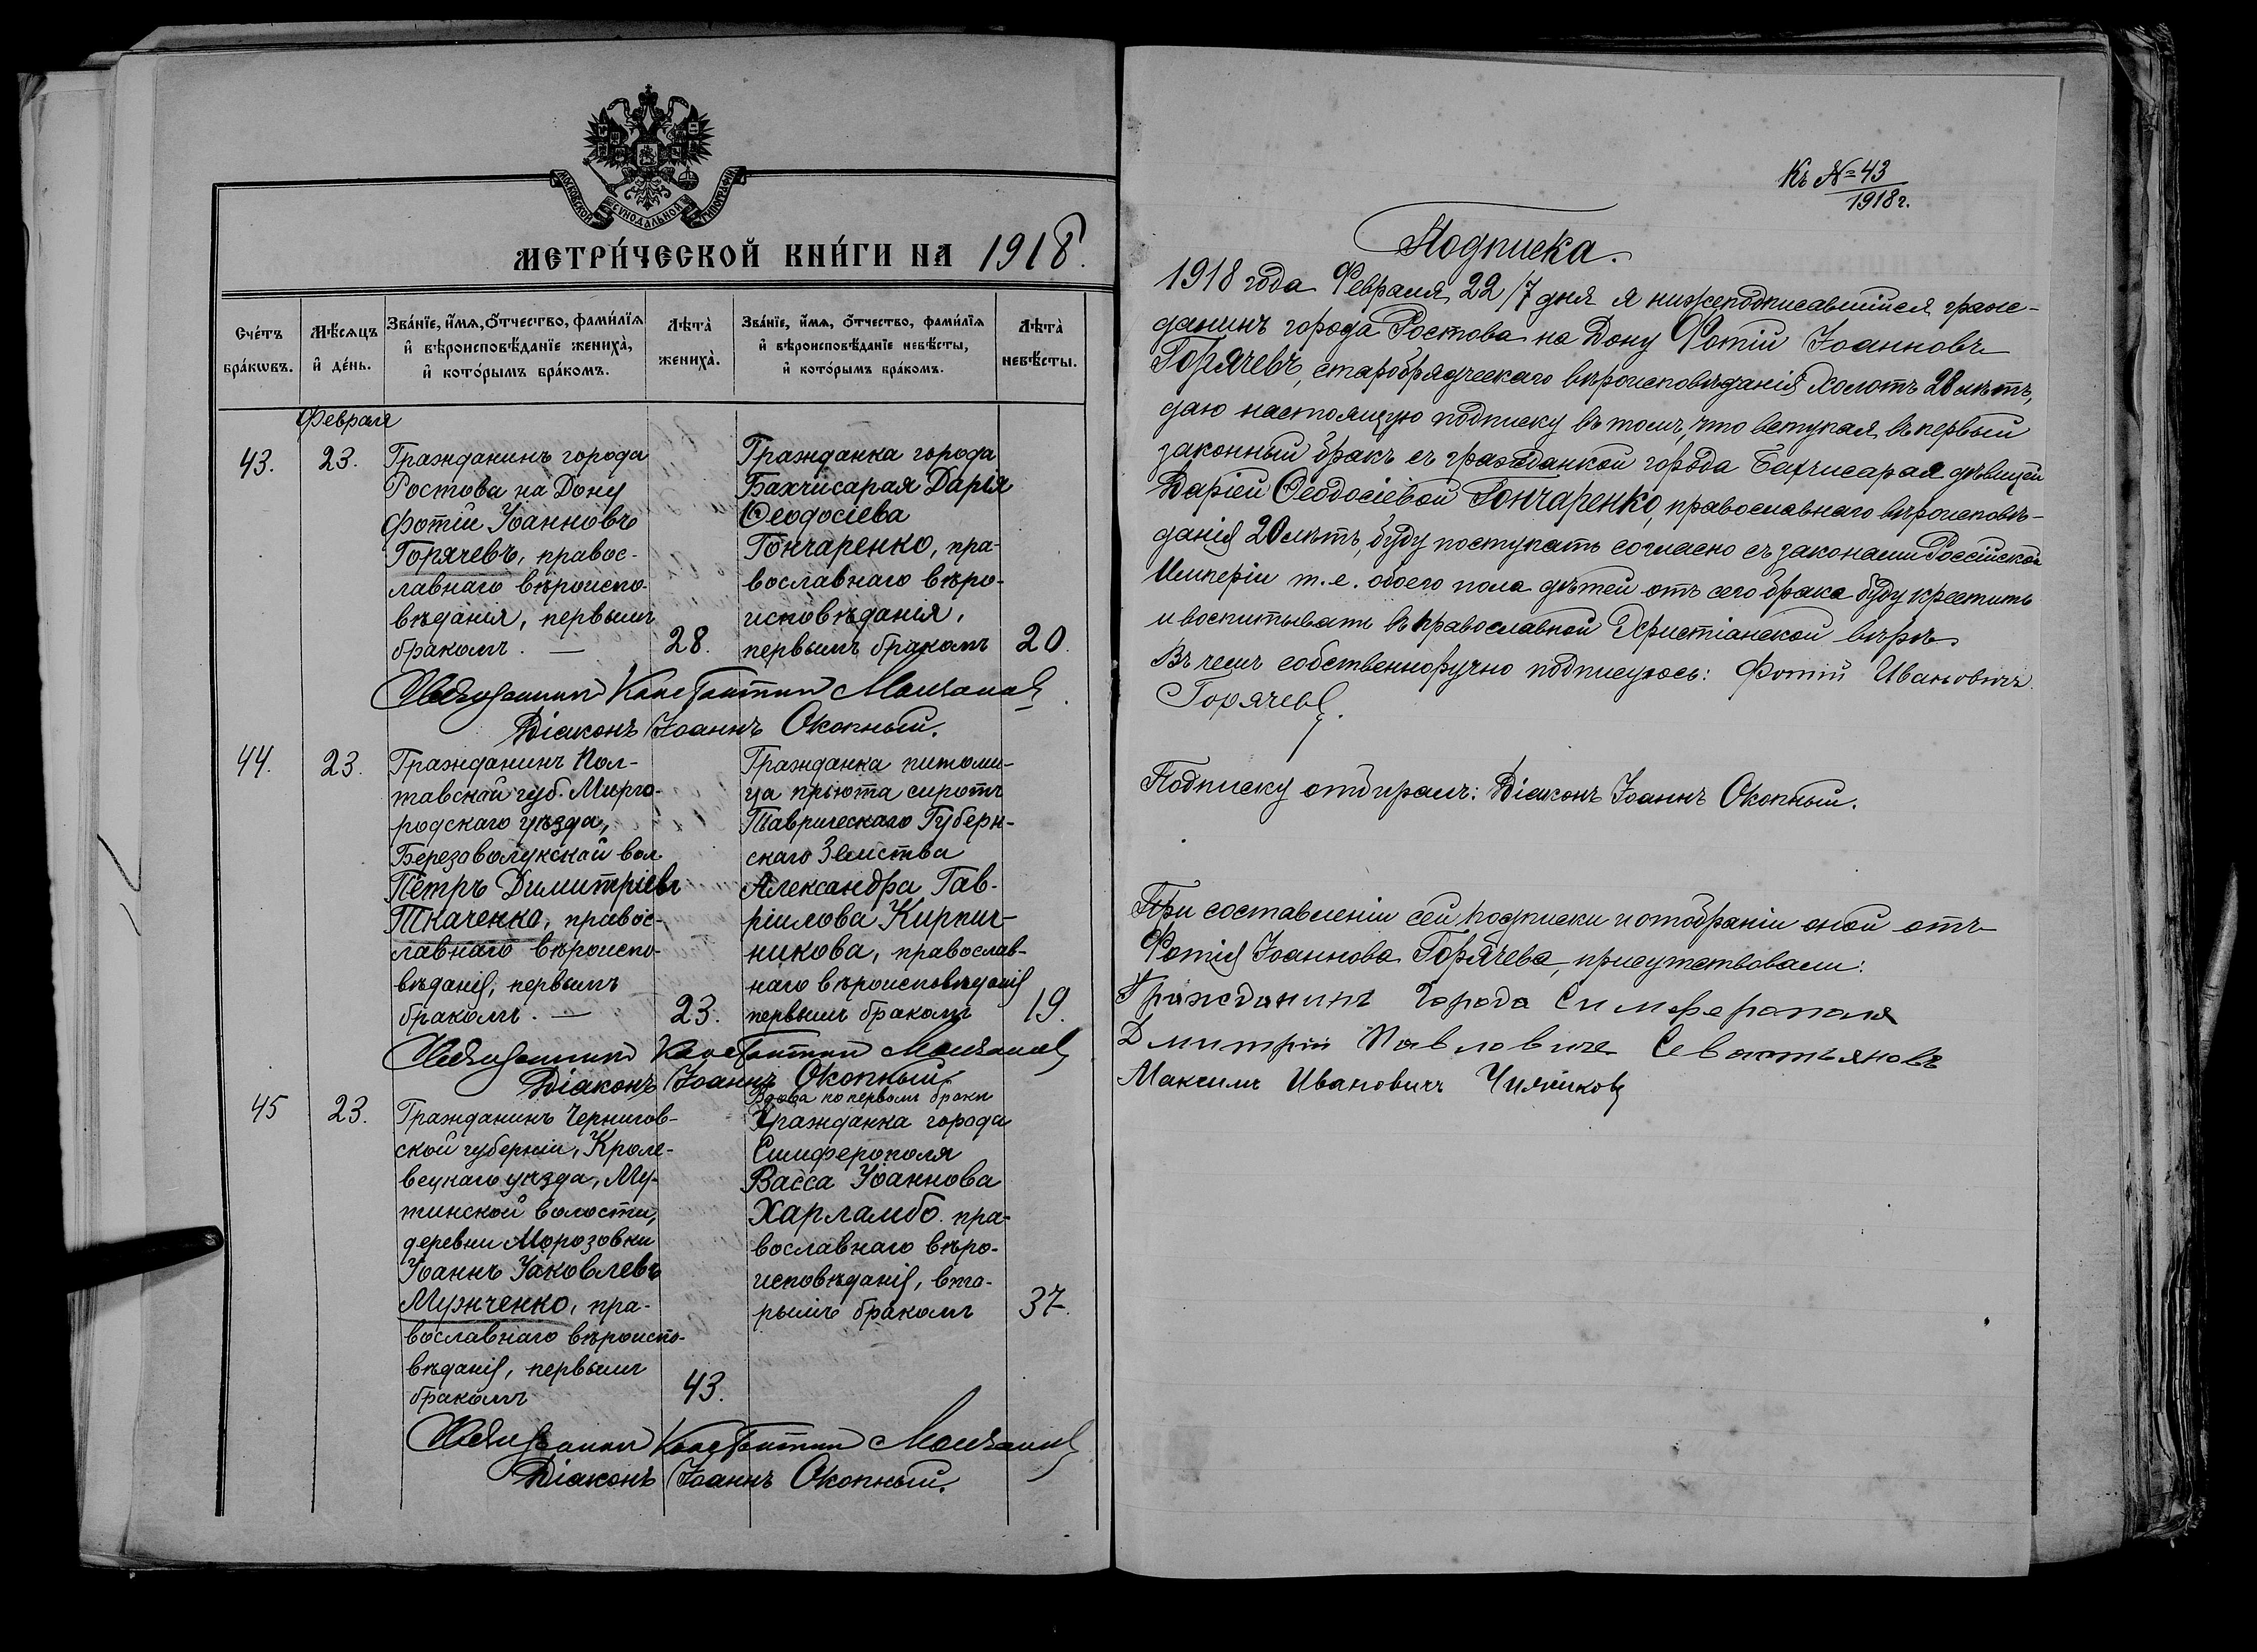 МОСКОВСКОЙ СѴНОДАЛЬНОЙ ТИПОГРАФІИ
МЕТРИ́ЧЕСКОЙ КНИ́ГИ НА 1918.
Сче́тъ бра́кѡвъ.
Мѣ́сяцъ и҆ де́нь.
Зва́нїе, и҆́мя, ѻ҆́тчество, фами́лїя и҆ вѣроисповѣ́данїе жениха̀, и҆ кото́рымъ бра́комъ.
Лѣта̀ жениха̀.
Зва́нїе, и҆́мя, ѻ҆́тчество, фами́лїя и҆ вѣроисповѣ́данїе невѣ́сты, и҆ кото́рымъ бра́комъ.
Лѣта̀ невѣ́сты.
Февраля
43.
23.
Гражданинъ города
Ростова на Дону
Фотій Іоанновъ
Горячевъ, правос-
лавнаго вѣроиспо-
вѣданія, первымъ
бракомъ. —
28.
Гражданка города
Бахчисарая Дарія
Ѳеодосіева
Гончаренко, пра-
вославнаго вѣро-
исповѣданія,
первымъ бракомъ
20.
Константин
Діаконъ Іоаннъ Окопный.
44.
23.
Гражданинъ Пол-
тавской губ. Мирго-
родскаго уѣзда,
Березоволукской вол.
Петръ Димитріевъ
Ткаченко, правос-
лавнаго вѣроиспо-
вѣданія, первымъ
бракомъ. —
23.
Гражданка питоми-
ца пріюта сиротъ
Таврическаго Губерн-
скаго Земства
Александра Гав-
ріилова Кирпич-
никова, православ-
наго вѣроисповѣданія
первымъ бракомъ
19.
Константин
Діаконъ Іоаннъ Окопный.
45
23.
Гражданинъ Чернигов-
ской губерніи, Кроле-
вецкаго уѣзда, Му-
тинской волости,
деревни Морозовки
Іоаннъ Іаковлевъ
Мужченко, пра-
вославнаго вѣроиспо-
вѣданія, первымъ
бракомъ
43.
Вдова по первомъ браки
Гражданка города
Симферополя
Васса Іоаннова
Харламбо. пра-
вославнаго вѣро-
исповѣданія, вто-
рымъ бракомъ
37.
Константин
Діаконъ Іоаннъ Окопный.
Къ №43
1918г.
Подписка.
1918 года Февраля 22/7 дня я нижеподписавшійся граж-
данинъ города Ростова на Дону Фотій Іоанновъ
Горячевъ, старобрядческаго вѣроисповѣданія холостъ 28 лѣтъ,
даю настоящую подписку въ томъ, что вступая въ первый
законный бракъ съ гражданкой города Бахчисарая дѣвицей
Даріей Ѳеодосіевой Гончаренко, православнаго вѣроисповѣ-
данія 20 лѣтъ, буду поступать согласно съ законами Россійской
Имперіи т.е. обоего пола дѣтей отъ сего брака буду крестить
и воспитывать въ православной Христіанской вѣрѣ.
Въ чемъ собственноручно подписуюсь: Фотій Ивановичъ
Горячевъ.
Подписку отбиралъ: Діаконъ Іоаннъ Окопный.
При составленіи сей подписки и отобраніи оной отъ
Фотія Іоаннова Горячева, присутствовали:
Гражданинъ Города Симферополя
Дмитрій Павловиче Севастьяновъ
Максимъ Ивановичъ